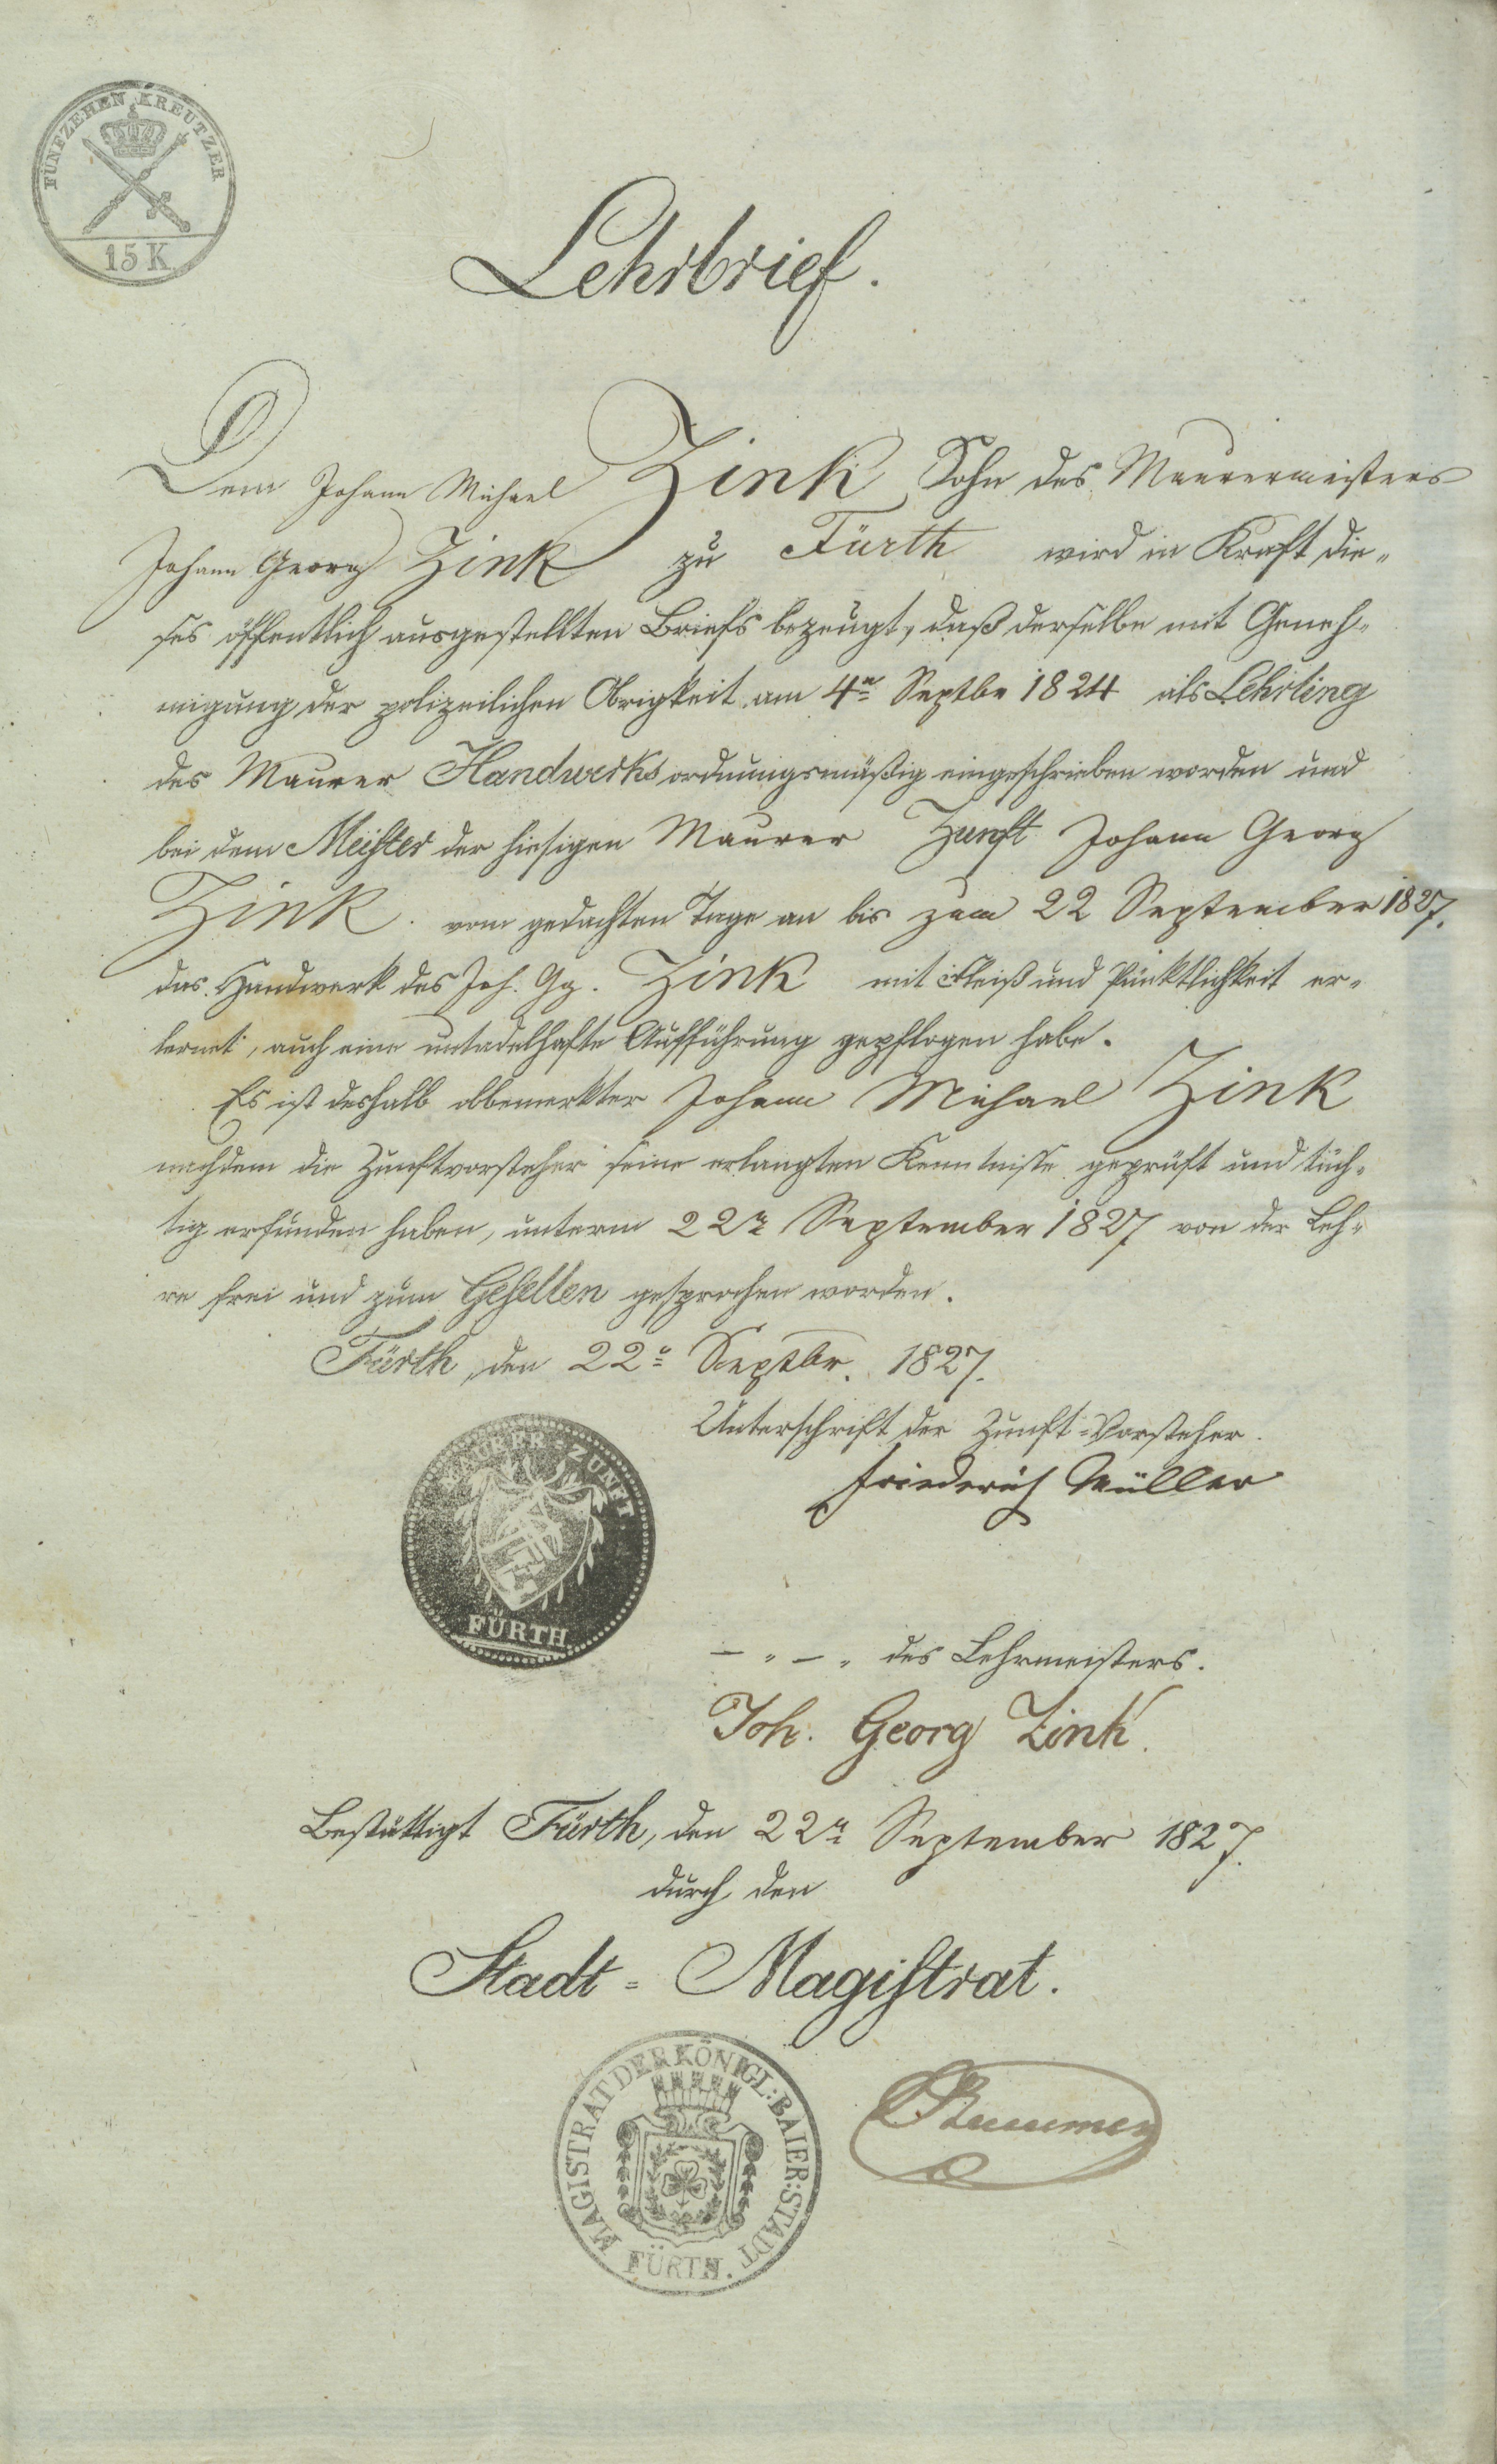 FÜNFZEHEN KREUTZER
15 K
Lehrbrief.
Dem Johann Michael Zink Sohn des Maurermeisters
Johann Georg Zink zu Fürth wird in Kraft die-
ses öffentlich ausgestellten Briefs bezeugt, daß derselbe mit Geneh-
migung der polizeilichen Obrigkeit am 4n Septbr 1824 als Lehrling
des Maurer Handwerks ordnungsmäßig eingeschrieben worden und
bei dem Meister der hiesigen Maurer Zunft Johann Georg
Zink. vom gedachten Tage an bis zum 22 September 1827.
das Handwerk des Joh. Gg. Zink mit Fleiß und Pünktlichkeit er-
lernt, auch eine untadelhafte Aufführung gepflogen habe.
Es ist deshalb obbemerkter Johann Michael Zink
nachdem die Zunftvorsteher seine erlangten Kenntnisse geprüft und tüch-
tig erfunden haben, unterm 22n September 1827 von der Leh-
re frei und zum Gesellen gesprochen worden.
Fürth, den 22n Septbr. 1827.
Unterschrift der Zunft-Vorsteher.
Friederich Müller
MAURER-ZUNFT
FÜRTH
— " — " des Lehrmeisters.
Joh. Georg Zink.
Bestättigt Fürth, den 22n September 1827.
durch den
Stadt-Magistrat.
MAGISTRAT DER KÖNIGL: BAIER: STADT
FÜRTH.